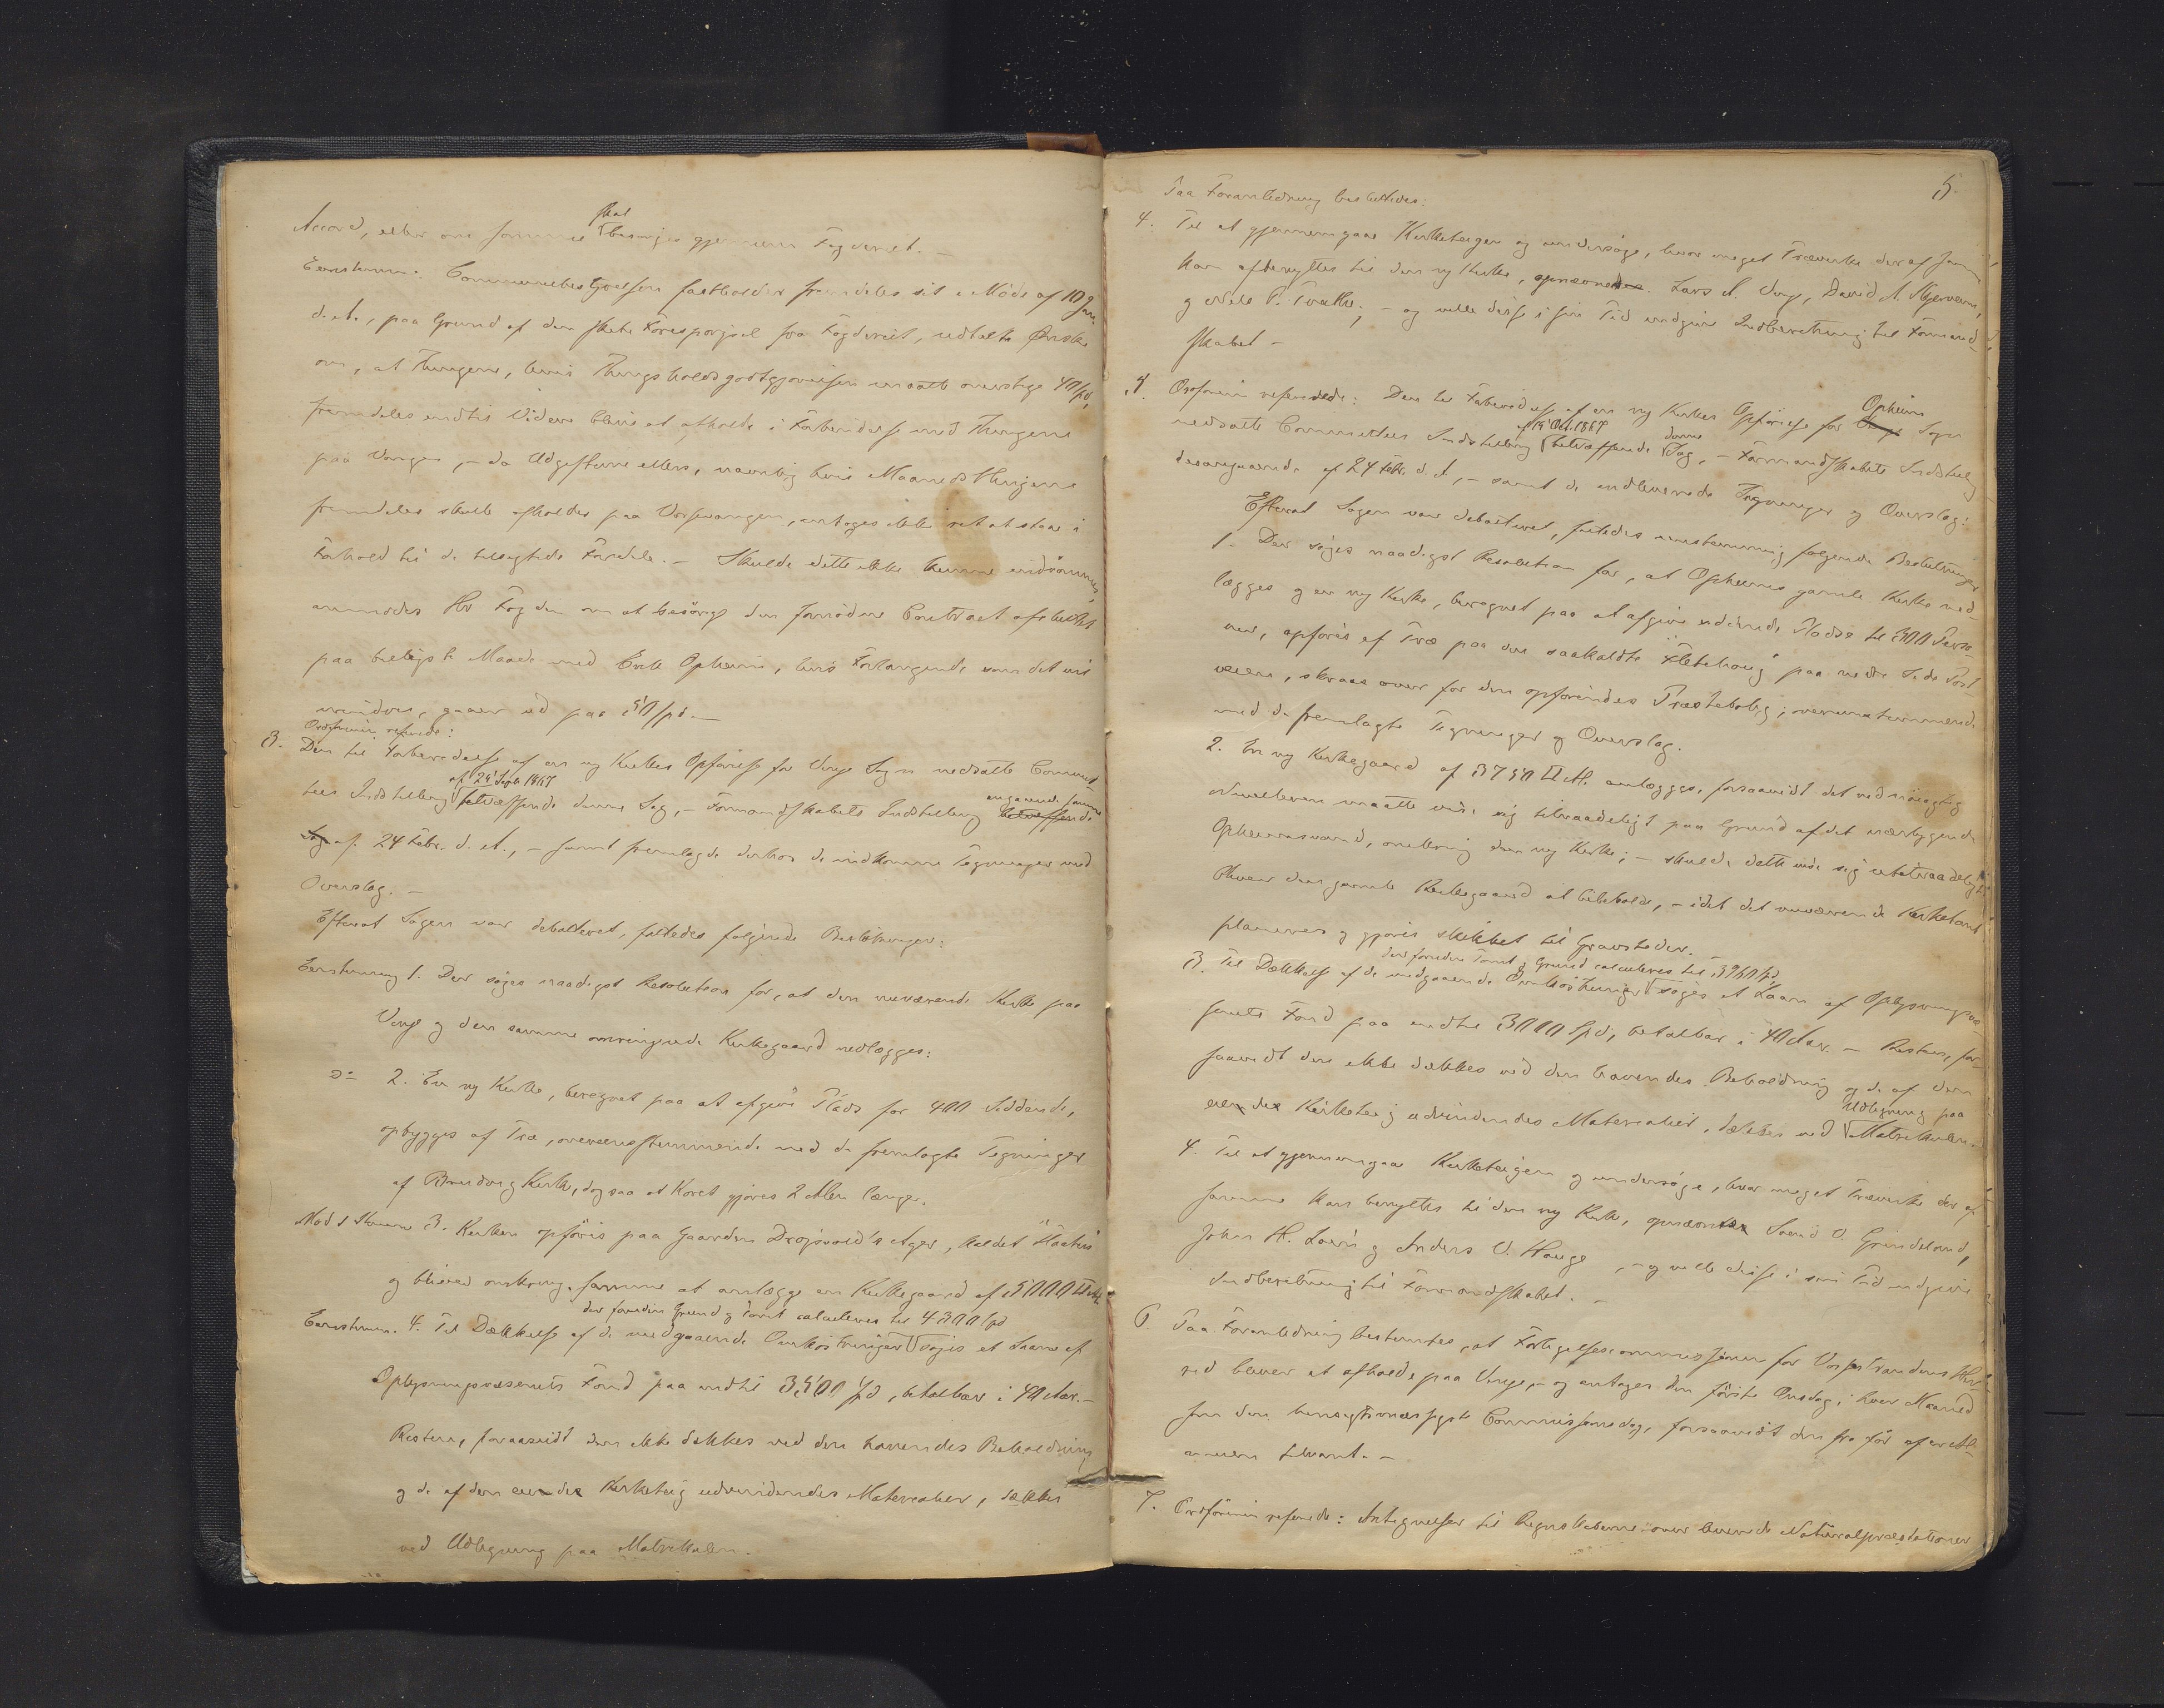 Accord, eller om samme skal besørges gjennem Fogderiet. —
Eenstemm. Communebestyrelsen fastholder fremdeles sit i Møde af 10 Jan.
d. A., paa Grund af den skete Forespørgsel fra Fogderiet, udtalte Ønske
om, at Thingene, hvis Thingsholdsgodtgjørelsen ansatte overstige 40 spd,
fremdeles indtil Videre blive at afholde i Forbindelse med Thingene
paa Vangen, — da Udgifterne ellers, navnlig hvis Maanedsthingene
fremdeles skulle afholdes paa Vossevangen, antages ikke ret at staae i
Forhold til de tilsigtede Fordele. — Skulde dette ikke kunne indrømmes,
anmodes Hr Fogden om at besørge den fornødne Contract afsluttet
paa billigste Maade med Enke Opheim, hvis Forlangende som det vil
erindres, gaaer ud paa 50 spd. —
Ordføreren refererede:
3. Den til Forberedelse af en ny Kirkes Opførelse for Vinje Sogn nedsatte Commit-
tees Indstilling af 24 Septb 1867 betræffende denne Sag, — Formandskabets Indstilling angaaende samme betræffende
Sag af 24 Febr. d. A., — samt fremlagde derhos de indkomne Tegninger med
Overslag. —
Efterat Sagen var debatteret, fattedes følgende Beslutninger:
Eenstemmig 1. Der søges naadigst Resolution for, at den nuværende Kirke paa
Vinje og den samme omringende Kirkegaard nedlægges:
Do 2. En ny Kirke, beregnet paa at afgive Plads for 400 Siddende,
opbygges af Træ, overeensstemmende med de fremlagte Tegninger
af Brudvig Kirke, dog saa at Koret gjøres 2 Alen længer.
Mod 1 Stemme 3. Kirken opføres paa Gaarden Drøgsvold's Ager, kaldet
og bliver omkring samme at anlægge en Kirkegaard af 5000 □ Al.
Eenstemm. 4. Til Dækkelse af de medgaaende Omkostninger der foruden Grund og Tomt calculeres til 4300 Spd søges et Laan af
Oplysningsvæsenets Fond paa indtil 3500 Spd, betalbar i 40 Aar. —
Resten, forsaavidt den ikke dækkes ved den havendes Beholdning
og de af den eiendes Kirketeig udvindendes Materialier, dækkes
ved Udligning paa Matrikulen.
5
Paa Foranledning besluttedes:
4. Til at gjennemgaae Kirketeigen og undersøge, hvor meget Trævirke der af samme
kan afbenyttes til den ny Kirke, opnævnedes Lars A. Vinje, David A. Skjerven,
og Nils P. Tvethe; — og ville disse i sin Tid indgive Indberetning til Formand-
skabet —
5. Ordføreren refererede: Den til Forberedelse af en ny Kirkes Opførelse for Vinje Opheims Sogn
nedsatte Committees Indstilling af 19 Oct. 1867 betræffende denne Sag, — Formandskabets Indstilling
desangaaende af 24 Febr. d. A, — samt de indleverede Tegninger og Overslag:
Efterat Sagen var debatteret, fattedes eenstemmig følgende Beslutninger
1. Der søges naadigst Resolution for, at Opheims gamle Kirke ned-
lægges og en ny Kirke, beregnet paa at afgive siddende Pladse til 300 Perso-
ner, opføres af Træ paa den saakaldte "Flatehaug" paa nedre Side Post-
veien, skraas over for den opførendes Præstebolig; overeensstemmende
med de fremlagte Tegninger og Overslag.
2. En ny Kirkegaard af 3750 □ Al. anlægges, forsaavidt det ved nøiagtig
Nivelleren maatte vise sig tilraadeligt paa Grund af det nærliggende
Opheimsvand, omkring den ny Kirke; — skulde dette vise sig utilraadeligt
bliver den gamle Kirkegaard at bibeholde, — idet det nuværende Kirketomt
planeres og gjøres skikket til Gravsteder.
3. Til Dækkelse af de medgaaende Omkostninger der foruden Tomt og Grund calculeres til 3960 Spd, søges et Laan af Oplysningsvæ-
senets Fond paa indtil 3000 Spd, betalbar i 40 Aar. — Resten, for-
saavidt den ikke dækkes ved den havendes Beholdning og de af den
eiendes Kirketeig udvindendes Materialier, dækkes ved Udligning paa Matrikulen.
4. Til at gjennemgaae Kirketeigen og undersøge, hvor meget Trævirke der af
samme kan benyttes til den ny Kirke, opnævntes Sveind O. Grindeland,
Johan H. Løen og Anders O. Hauge, — og ville disse i sin Tid indgive
Indberetning til Formandskabet. —
6. Paa Foranledning bestemtes, at Forligelsescommissionen for Vossestrandens Her-
red bliver at afholde paa Vinje, — og antages den første Onsdag i hver Maaned
som den hensigtsmæssigste Commissionsdag, forsaavidt den fra før af er Al-
muen bekvant. —
7. Ordføreren refererede: Antegnelser til Regnskaberne over leverede Naturalpræstationer